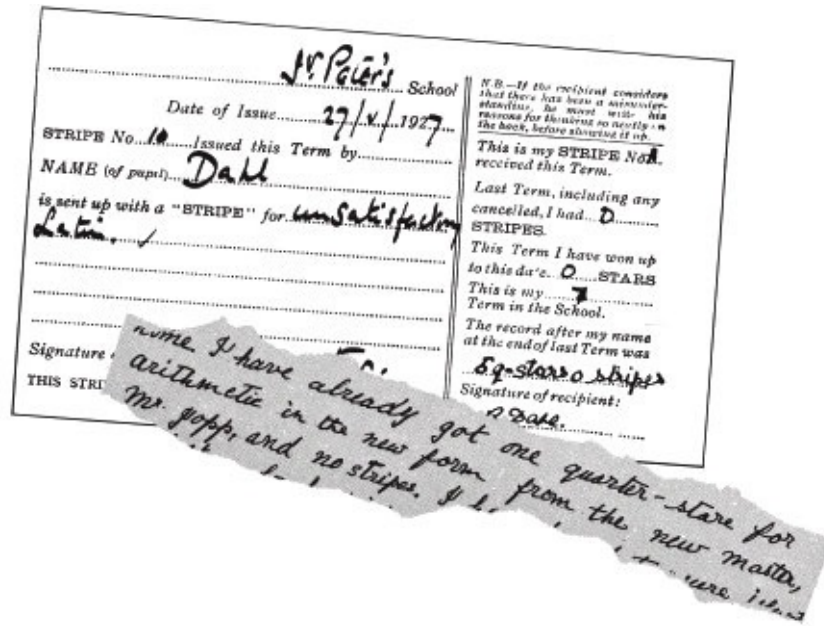 St. Peter's School
Date of Issue 27/V/1927
STRIPE No. 10 Issued this Term by
NAME (of pupil) Dahl
is sent up with a "STRIPE" for unsatisfactory
Latin.
Signature
THIS STRI
N.B.—If the recipient considers
that there has been a misunder-
standing, he must write his
reasons for thinking so neatly on
the back, before showing it up.
This is my STRIPE No.
received this Term.
Last Term, including any
cancelled, I had
STRIPES.
This Term I have won up
to this date O STARS
This is my 7
Term in the School.
The record after my name
at the end of last Term was
5 q-stars o stripes
Signature of recipient:
R Dahl.
I have already got one quarter-stare for
arithmetic in the new form from the new master,
Mr. Jopp, and no stripes. I